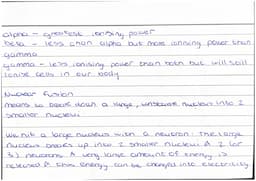 alpha - greatest ionising power
beta - less than alpha but more ionising power than
gamma
gamma - less ionising power than both but will still
ionise cells in our body
Nuclear fusion
means to break down a large, unstable nucleus into 2
smaller nuclei.
We hit a large nucleus with a neutron. The large
nucleus breaks up into 2 smaller nuclei & 2 (or
3) neutrons. A very large amount of energy is
released & this energy can be changed into electricity.